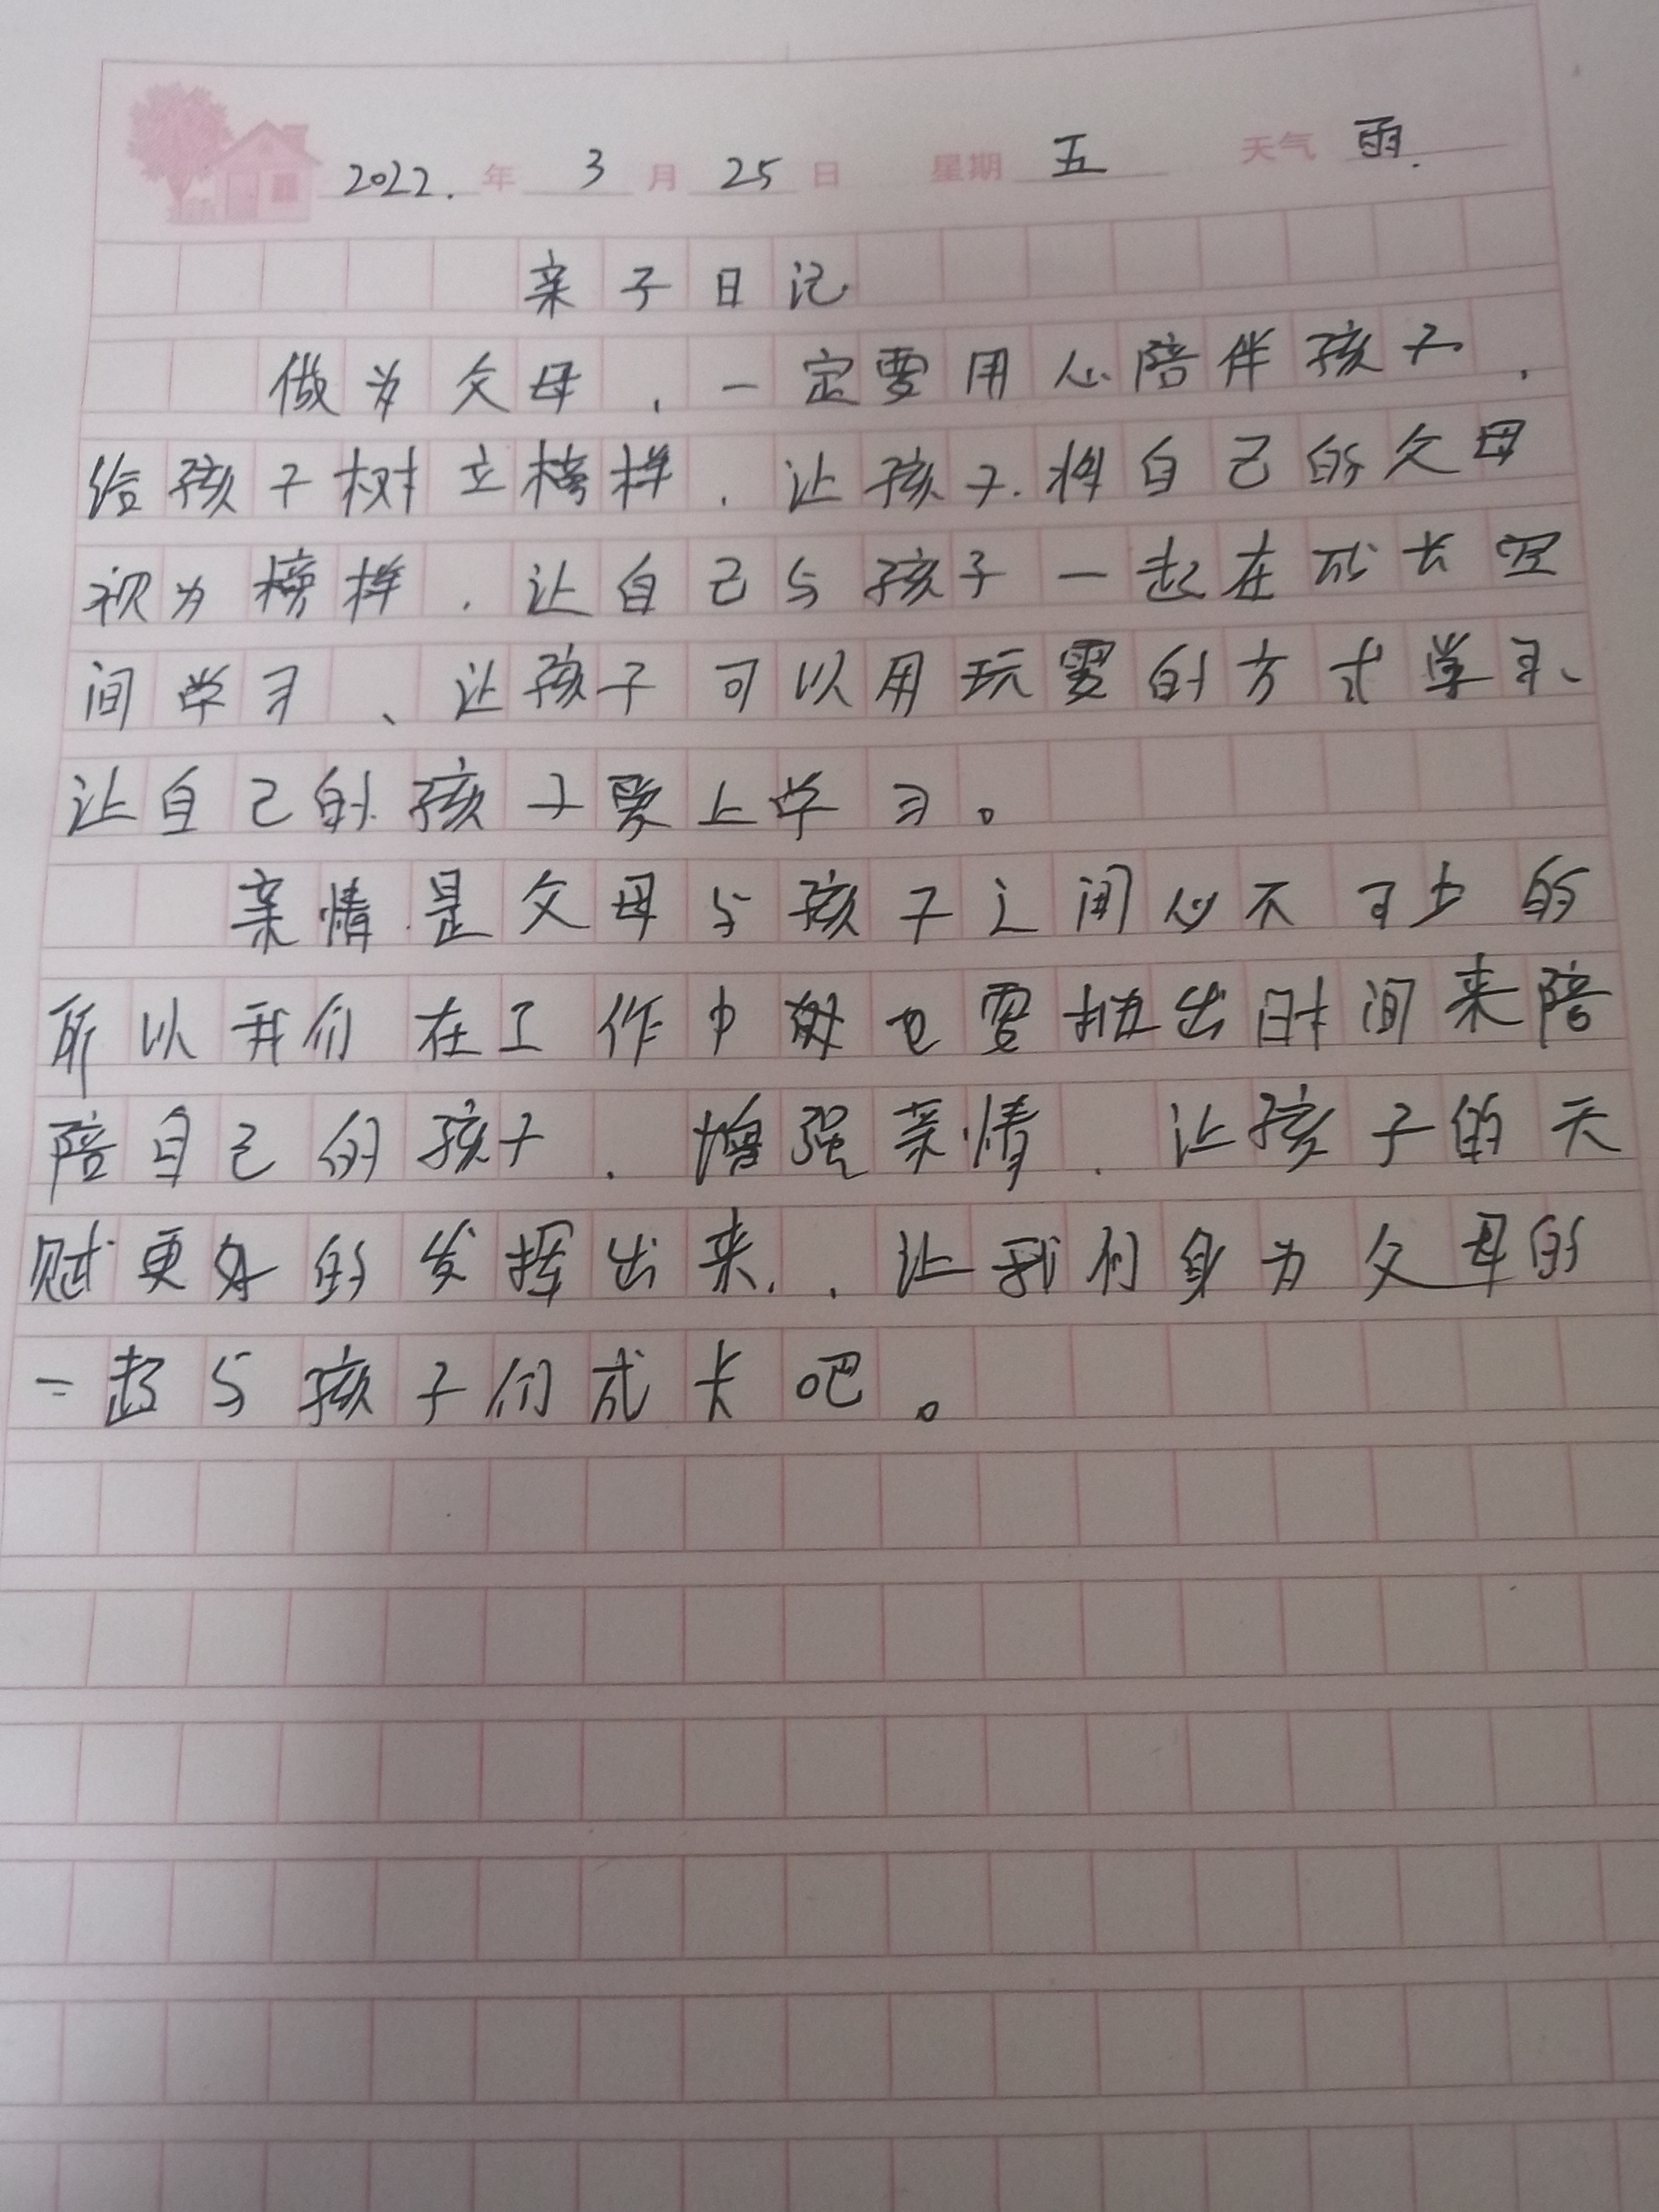 2022. 年 3 月 25 日 星期 五 天气 雨.
亲子日记
做为父母，一定要用心陪伴孩子，
给孩子树立榜样，让孩子将自己的父母
视为榜样，让自己与孩子一起在成长空
间学习、让孩子可以用玩耍的方式学习、
让自己的孩子爱上学习。
亲情是父母与孩子之间必不可少的
所以我们在工作中也要抽出时间来陪
陪自己的孩子，增强亲情，让孩子的天
赋更好的发挥出来，让我们身为父母的
一起与孩子们成长吧。